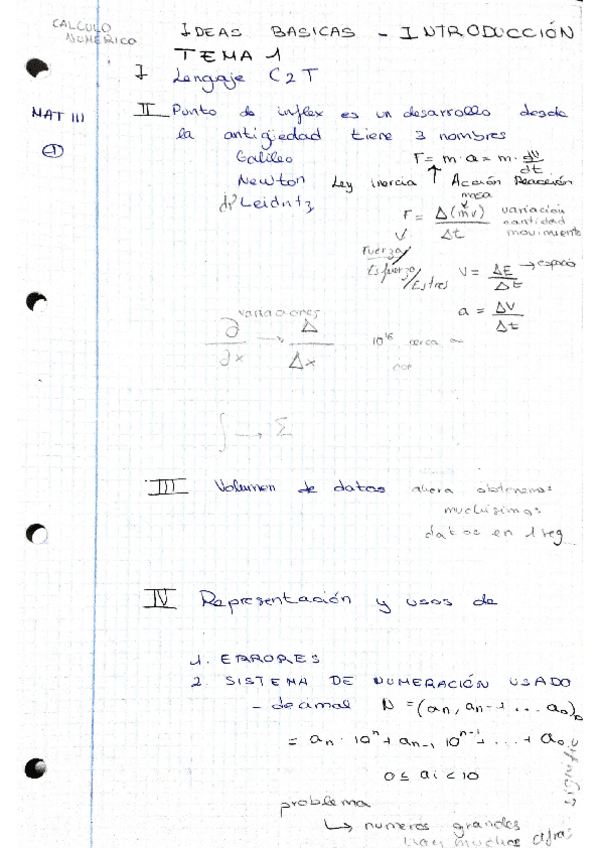 CALCULO
NUMÉRICO
IDEAS BASICAS - INTRODUCCIÓN
TEMA 1
I Lengaje C2T
MAT III
1
II Punto de inflex es un desarrollo desde
la antigiedad tiene 3 nombres
Galileo F = m · a = m · dv/dt
Newton Ley inercia ↑ Acción Reacción
Leidntz
F = Δ(mv)/Δt variación cantidad movimiento
Fuerza/
Esfuerzo/Estres
V = ΔE/Δt → espacio
a = ΔV/Δt
variaciones
∂/∂x → Δ/Δx 10¹⁶ cerca
∫ → Σ
III Volumen de datos ahora obtenemos
muchisimos
datos en 1 reg
IV Representación y usos de
1. ERRORES
2. SISTEMA DE NUMERACIÓN USADO
- decimal N = (an, an-1 ... a0)
= an · 10ⁿ + an-1 10ⁿ⁻¹ + ... + a0
0 ≤ ai < 10
problema
↳ numeros grandes
hay muchas cifras